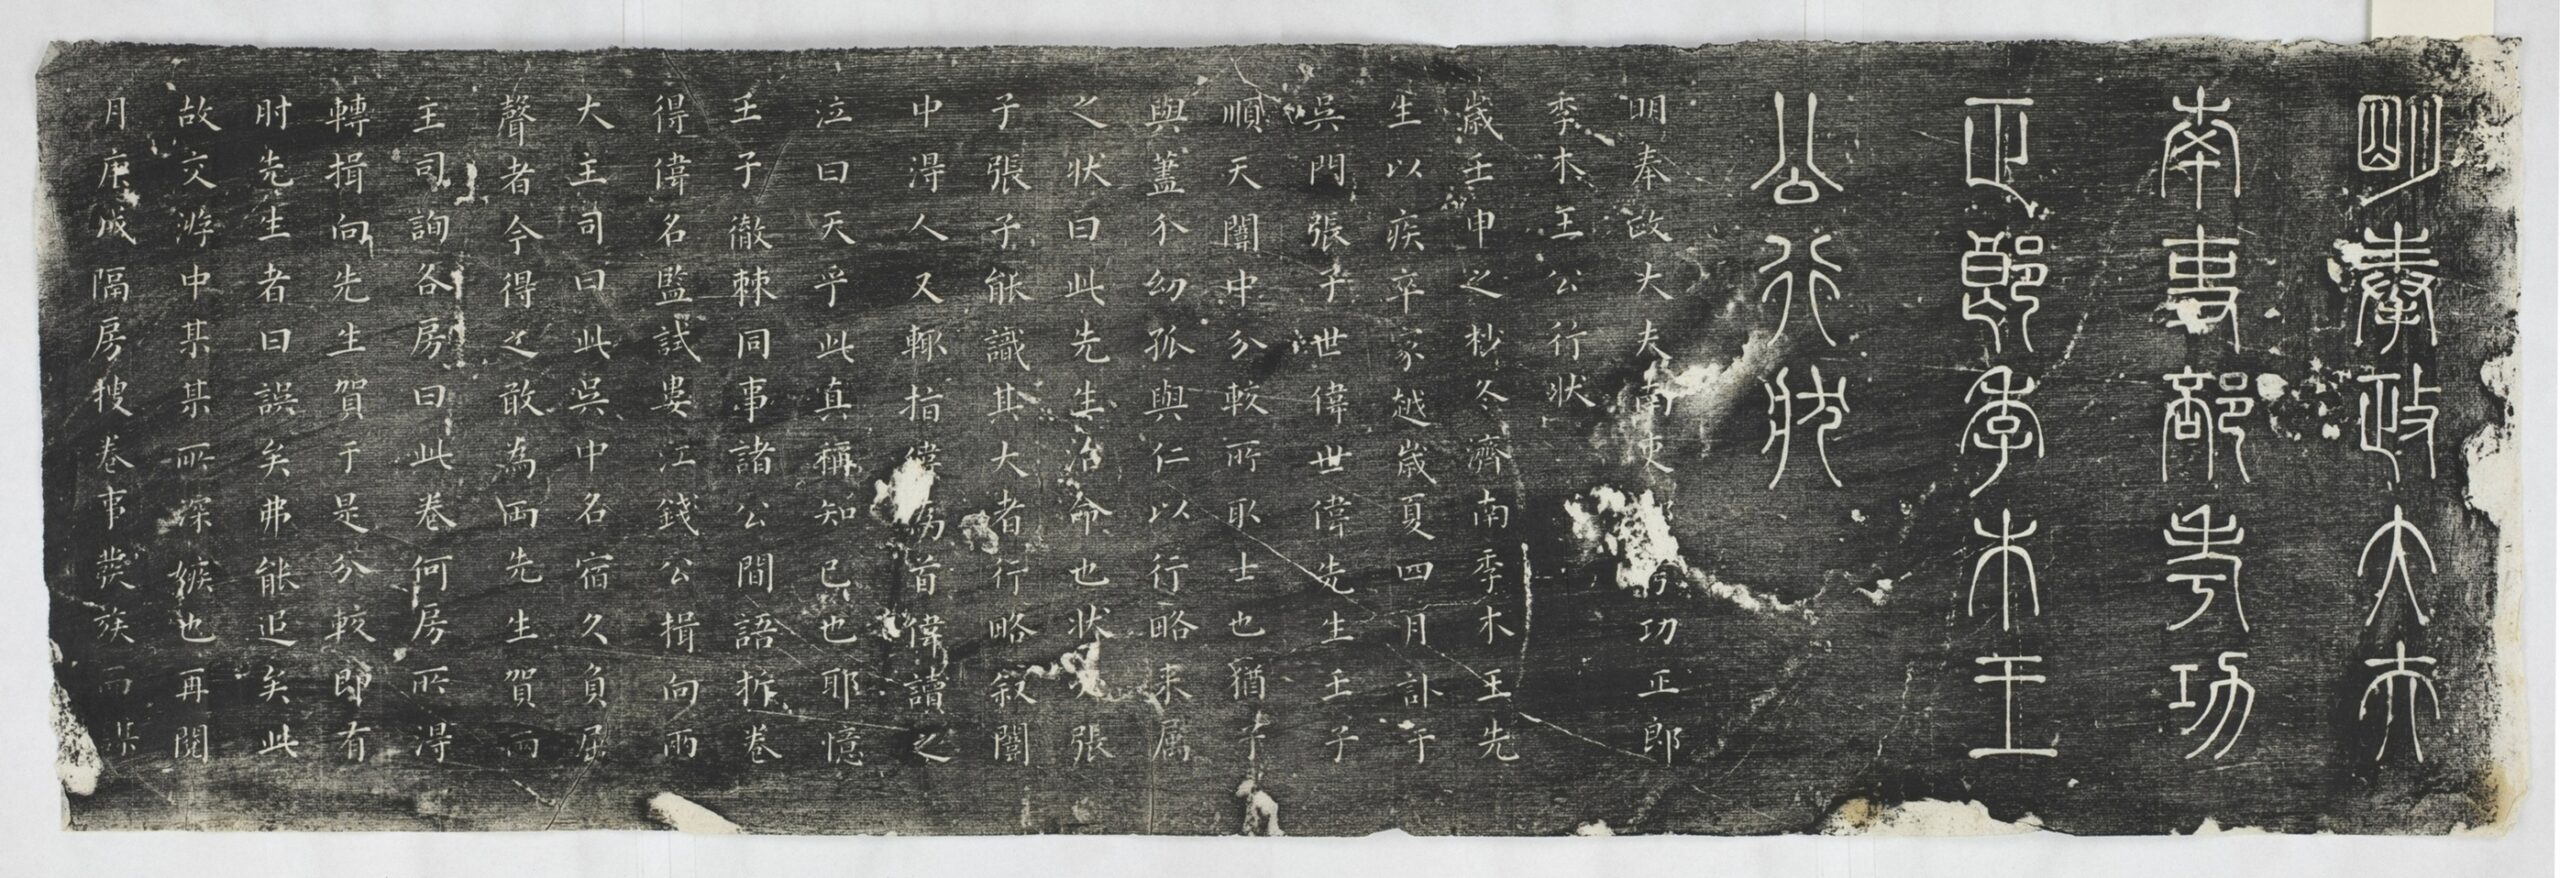 明奉政大夫
南吏部考功
正郎季木王
公行狀
明奉政大夫南吏部考功正郎
季木王公行狀
歲壬申之杪冬濟南季木王先
生以疾卒家越歲夏四月訃于
吳門張子世偉世偉先生壬子
順天闈中分較所取士也猶子
與藎介幼孤與仁以行略来属
之状曰此先生治命也状 張
子張子能識其大者行略叙闈
中淂人又輒指偉為首偉讀之
泣曰天乎此真稱知已也耶憶
壬子徹棘同事諸公間語拆卷
得偉名監試婁江錢公揖向兩
大主司曰此吳中名宿久負屈
聲者今得之敢為兩先生賀兩
主司詢各房曰此卷何房所淂
轉揖向先生賀于是分較即有
时先生者曰誤矣弗能追矣此
故交游中某某所深嫉也再閱
月庚戌隔房搜卷事發族而